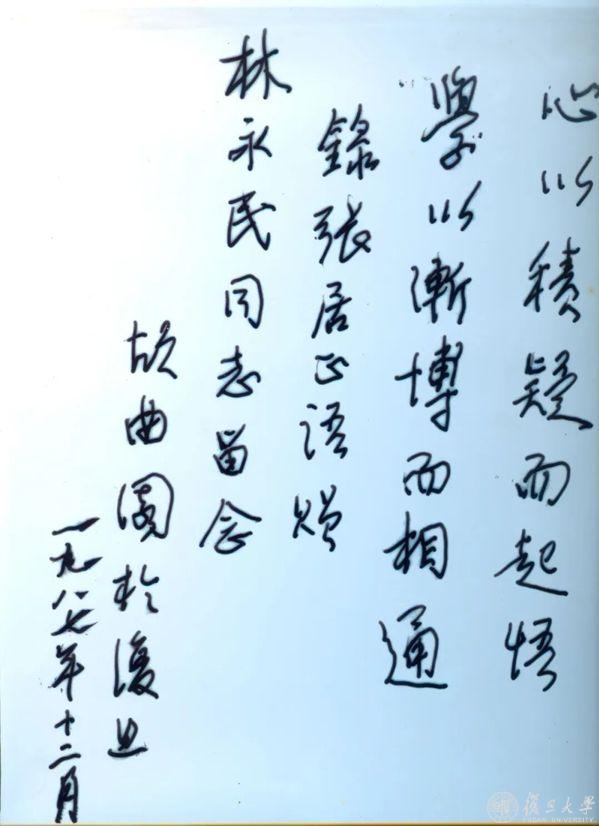 心以積疑而起悟
學以漸博而相通
錄張居正语贈
林永民同志留念
胡曲園於復旦
一九八七年十二月
復旦大學
FUDAN UNIVERSITY